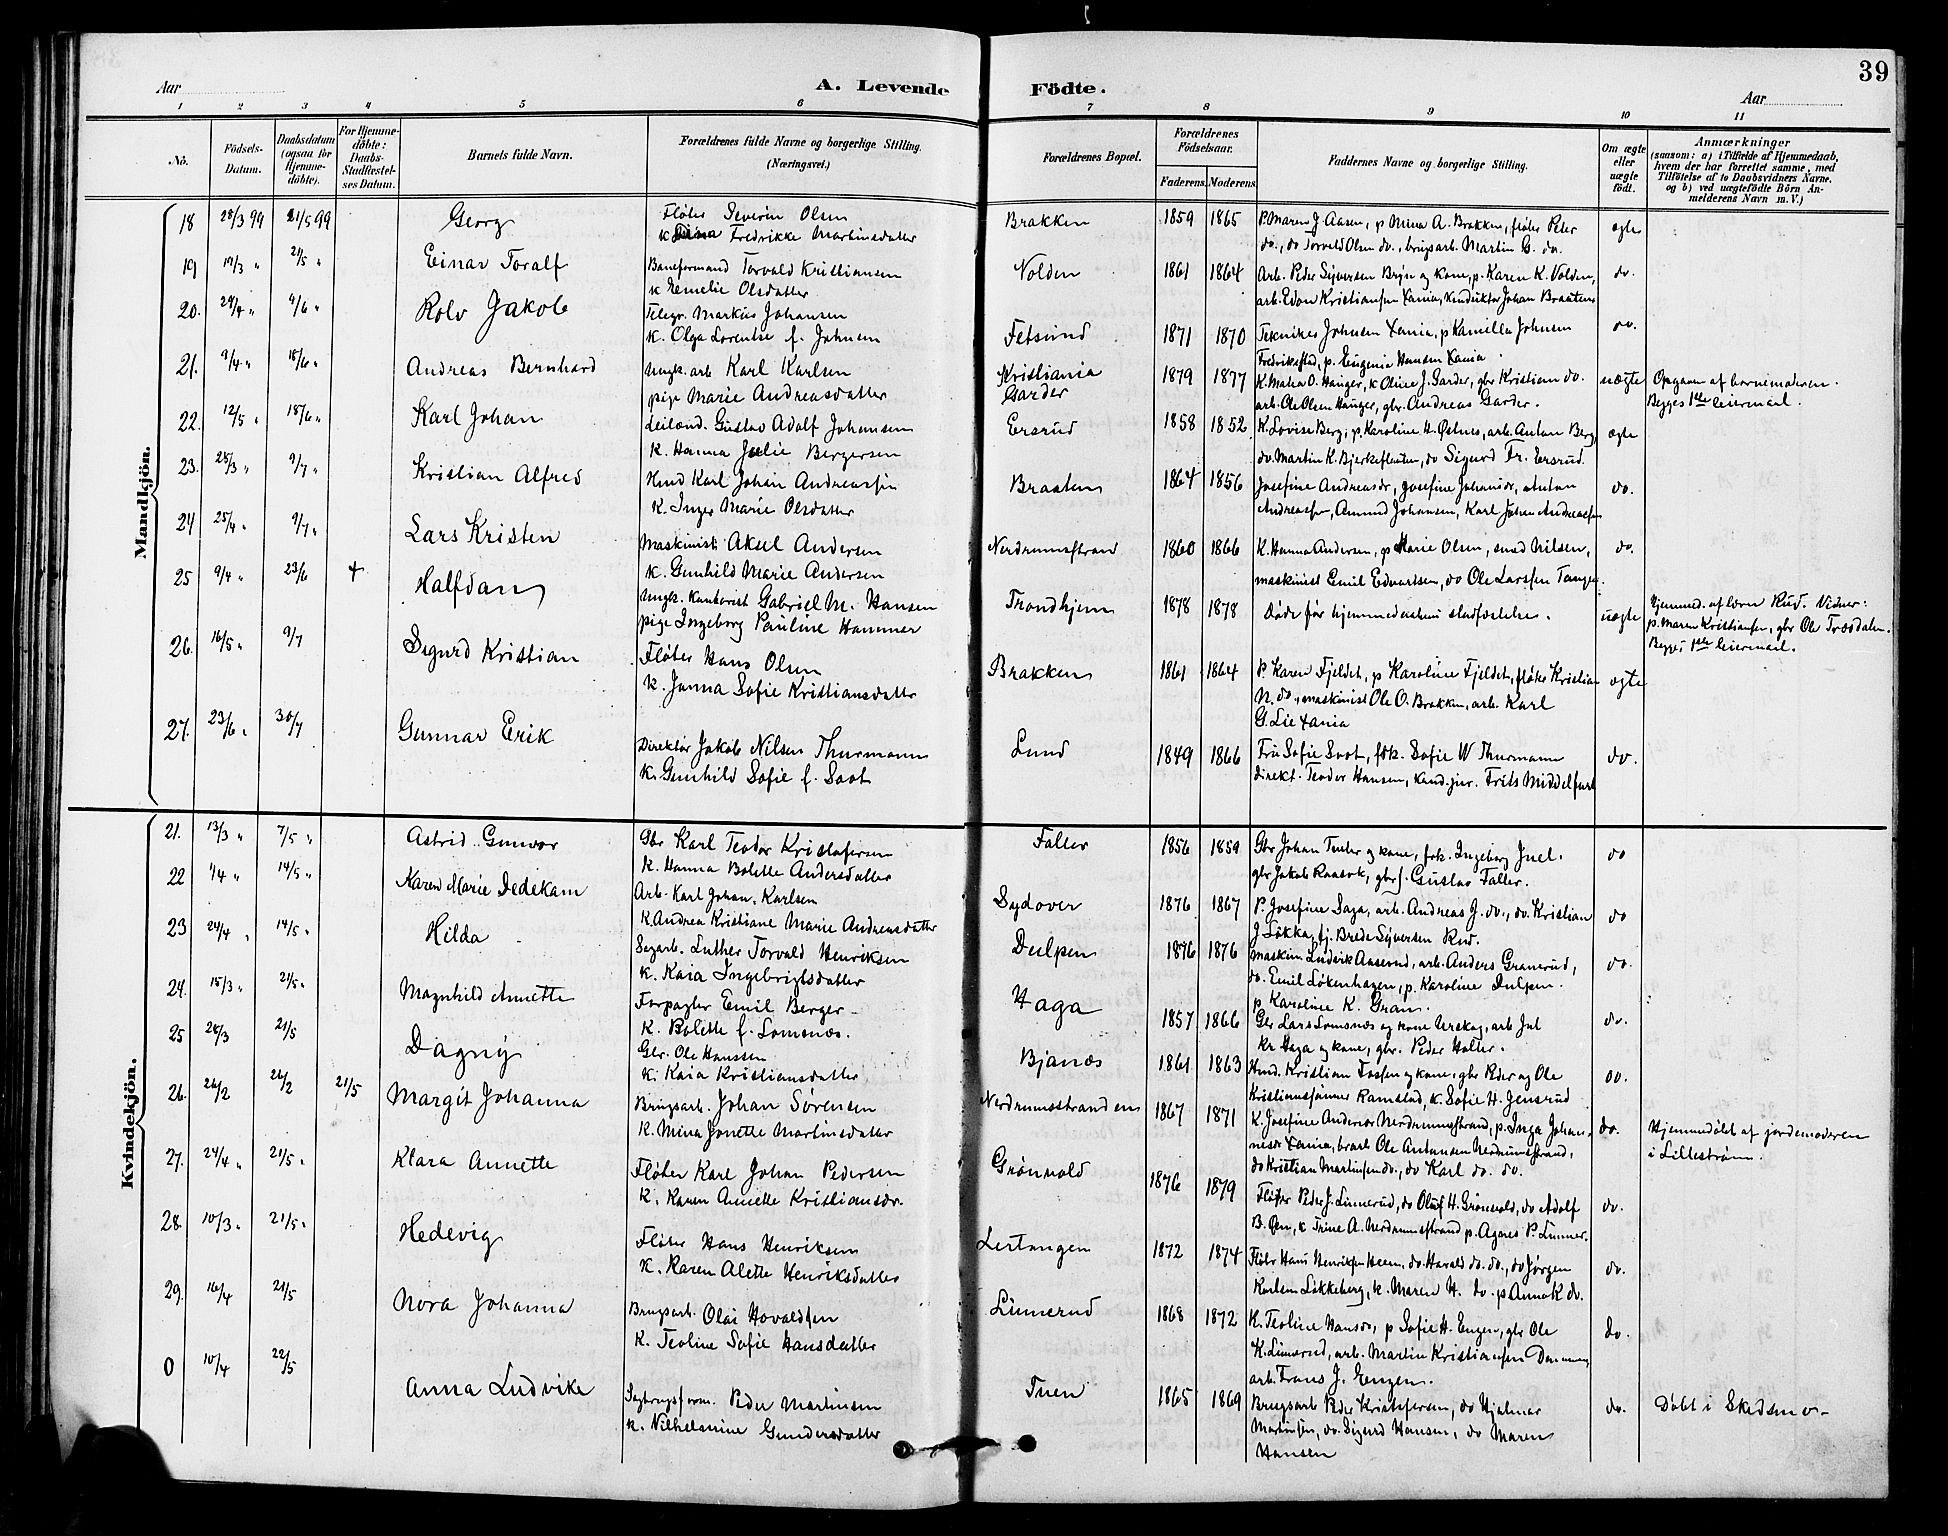 39
Aar
A. Levende Födte.
Aar
1 2 3 4 5 6 7 8 9 10 11
No.
Födsels-Datum.
Daabsdatum (ogsaa for Hjemme-döbte).
For Hjemme-döbte: Daabs-Stadfæstel-ses Datum.
Barnets fulde Navn.
Forældrenes fulde Navne og borgerlige Stilling. (Næringsvei.)
Forældrenes Bopæl.
Forældrenes Födselsaar.
Faderens. Moderens.
Faddernes Navne og borgerlige Stilling.
Om ægte eller uægte födt.
Anmærkninger
(saasom: a) i Tilfælde af Hjemmedaab, hvem der har forrettet samme, med Tilföielse af to Daabsvidners Navne, og b) ved uægtefödte Börn An-melderens Navn m. V.)
Mandkjön.
18 28/3 99 21/5 99 Georg
Fløter Severin Olsen
K. Fredrikke Martinsdatter
Brakken 1859 1865
P. Maren J. Aasen, p Mina A. Brakken, fløter Peter
do., do Torvald Olsen do., brugsarb. Martin G. do.
ægte
19 19/3 " 21/5 " Einar Toralf
Baneformand Torvald Kristiansen
K Emelie Olsdatter
Volden 1861 1864
Arb. Peder Syversen Bryn og kone, p. Karen K. Volden,
arb. Edon Kristiansen Xania, Konduktør Johan Braaten
do.
20. 24/4 " 4/6 " Rolv Jakob
Telegr. Markus Johansen
K. Olga Lorentse f. Johnsen
Fetsund 1871 1870
Tekniker Johnsen Xania, p Kamilla Johnsen
Fredrikstad, p. Eugenia Hansen Xania.
do.
21. 9/4 " 18/6 " Andreas Bernhard
Ungk. arb Karl Karlsen
pige Marie Andreasdatter
Kristiania
Garder
1879 1877
K. Malea O. Hauger, k Oline J. Garder, gbr Kristian do.
arb. Ole Olsen Hauger, gbr. Andreas Garder.
uægte
Opgaven af barnemoderen.
Begges 1ste leiermaal.
22. 12/5 " 18/6 " Karl Johan
Leilænd. Gustav Adolf Johansen
K. Hanna Julie Bergersen
Ersrud 1858 1852
K. Lovise Berg, p. Karoline H. Østnes, arb. Anton Berg
do. Martin K. Bjerkeflaaten, do Sigurd Fr. Ersrud.
ægte
23. 28/3 " 9/7 " Kristian Alfred
Hmd Karl Johan Andreassen
K. Inger Marie Olsdatter
Braaten 1864 1856
Josefine Andreasdr, Josefine Johansdr, Anton
Andreassen, Amund Johansen, Karl Johan Andreassen
do.
24 25/4 " 9/7 " Lars Kristen
Maskinist Aksel Andersen
K. Gunhild Marie Andersen
Nerdrumsstrand 1860 1866
K. Hanna Andersen, p Marie Olsen, smed Nilsen,
maskinist Emil Edvardsen, do Ole Larssen Tangen.
do.
25 9/4 " 23/6 + Halfdan
Ungk. kontorist Gabriel M. Hansen
pige Ingeborg Pauline Hammer
Trondhjem 1878 1878
Døde før hjemmedaaben stadfæstedes.
uægte
Hjemmed. af lærer Rud. Vidner:
p. Maren Kristiansen, gbr Ole Træsdalen.
Begges 1ste leiermaal.
26. 16/5 " 9/7 Sigurd Kristian
Fløter Hans Olsen
K. Janna Sofie Kristiansdatter
Brakken 1861 1864
P. Karen Fjeldet, p Karoline Fjeldet, fløter Kristian
N. do., maskinist Ole O. Brakken, arb. Karl
G. Lie Xania
ægte
27. 23/6 " 30/7 Gunnar Erik
Direktør Jakob Nilsen Thurmann
K. Gunhild Sofie f. Soot
Lund 1849 1866
Fru Sofie Soot, frk. Sofie W Thurmann
direkt. Teodor Hansen, kand. jur. Frits Middelfart
do.
Kvindekjön.
21. 13/3 " 7/5 " Astrid Gunvor
Gbr Karl Teodor Kristofersen
K. Hanna Bolette Andersdatter
Faller 1856 1859
Gbr Johan Tenter og kone, frk. Ingeborg Juel.
gbr Jakob Raasok, gbrs. Gustav Faller.
do
22 1/4 " 14/5 " Karen Marie Dedekam
Arb. Karl Johan Karlsen
K. Andrea Kristiane Marie Andreasdatter
Sydover 1876 1867
P. Josefine Saga, arb. Andreas J. do., do. Kristian
J Løkka, tj. Brede Syversen Rud.
do
23 24/4 " 14/5 " Hilda
Sagarb. Luther Torvald Henriksen
K. Kaia Ingebrigtsdatter
Dulpen 1876 1876
maskin. Ludvik Aaserud, arb. Anders Granerud,
do. Emil Løkenhagen, p. Karoline Dulpen.
p Karoline K. Gran.
do.
24. 15/3 " 21/5 " Magnhild Annette
Forpagter Emil Berger
K. Bolette f. Lomsnæs.
Haga 1857 1866
Gbr Lars Lomsnæs og kone Urskog, arb Jul
Kr Haga og kone, gbr. Peder Holter.
do.
25 28/3 21/5 Dagny
Gbr. Ole Hanssen
K. Kaia Kristiansdatter
Bjanæs 1861 1863
Hmd. Kristian Fossen og kone, gbr Peder og Ole
Kristianssønner Ramstad, k. Sofie H. Jensrud
do.
26. 26/2 26/2 21/5 Margit Johanna
Brugsarb. Johan Sørensen
K. Mina Jonette Martinsdatter
Nerdrumsstranden 1867 1871
K. Josefine Andersdr Nerdrumsstrand, p. Inga Johan-
nesdr Xania, br.arb Ole Antonsen Nerdrumsstrand,
do Kristian Martinsen do., do Karl do. do.
do.
Hjemmedøbt af jordemoderen
i Lillestrøm.
27. 24/4 " 21/5 " Klara Annette
Fløter Karl Johan Pedersen
K. Karen Annette Kristiansdr.
Grønvold 1876 1879
Fløter Peder J. Linnerud, do Oluf H. Grønvold, do Adolf
B. Øen, k Trine A. Nerdrumsstrand p. Agnes P. Linner.
do.
28. 10/3 " 21/5 " Hedevig
Fløter Hans Henriksen
K. Karen Alette Henriksdatter
Lertangen 1872 1874
Fløter Hans Henriksen Heen, do. Harald do. do., do Jørgen
Karlsen Løkkeberg, k. Maren H. do. p Anna K do.
do.
29. 16/4 21/5 Nora Johanna
Brugsarb. Olai Hovaldsen
K. Teoline Sofie Hansdatter
Linnerud 1868 1872
K. Teoline Hansdr, p Sofie H. Engen, gbr Ole
K. Linnerud, arb. Martin Kristiansen
arb. Frans J. Engen.
do.
0 10/4 22/5 Anna Ludvike
Sagbrugsform. Peder Martinsen
K. Vilhelmine Gundersdatter
Tuen 1865 1869
Brugsarb Peder Kristofersen, do Hjalmar
Martinsen, do. Sigurd Hansen, do Maren
Hansen
do.
Døbt i Skedsmo